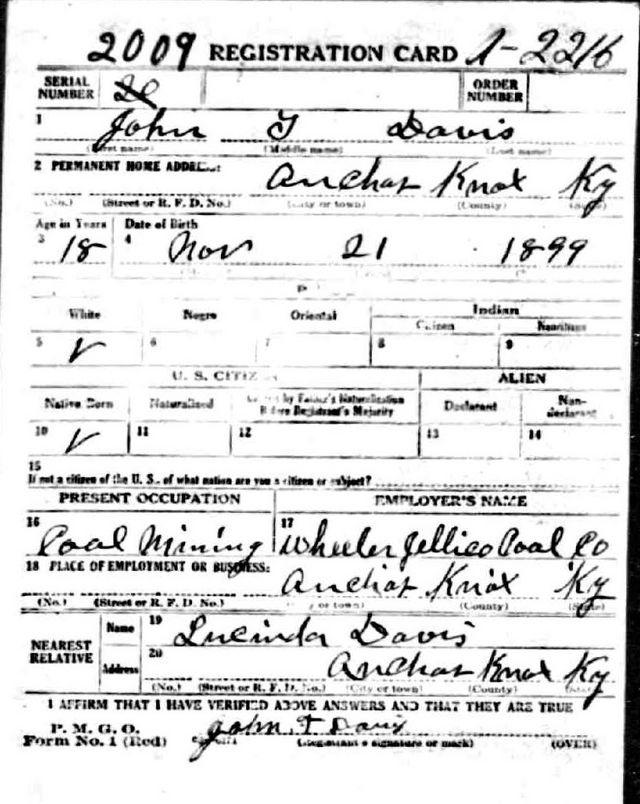 2009 REGISTRATION CARD A-2216
SERIAL NUMBER 20 ORDER NUMBER
1 John T Davis
(First name) (Middle name) (Last name)
2 PERMANENT HOME ADDRESS: Anchor Knox Ky
(No.) (Street or R. F. D. No.) (City or town) (County) (State)
Age in Years Date of Birth
3 18 4 Nov 21 1899
White Negro Oriental Indian
Citizen Noncitizen
5 ✓ 6 7 8 9
U. S. CITIZEN ALIEN
Native Born Naturalized Citizen by Father's Naturalization Before Registrant's Majority Declarant Non-declarant
10 ✓ 11 12 13 14
15
If not a citizen of the U. S., of what nation are you a citizen or subject?
PRESENT OCCUPATION EMPLOYER'S NAME
16 Coal Mining 17 Wheeler Jellico Coal Co
18 PLACE OF EMPLOYMENT OR BUSINESS: Anchor Knox Ky
(No.) (Street or R. F. D. No.) (City or town) (County) (State)
NEAREST RELATIVE Name 19 Lucinda Davis
Address 20 Anchor Knox Ky
(No.) (Street or R. F. D. No.) (City or town) (County) (State)
I AFFIRM THAT I HAVE VERIFIED ABOVE ANSWERS AND THAT THEY ARE TRUE
P. M. G. O.
Form No. 1 (Red) John T Davis
(Registrant's signature or mark) (OVER)